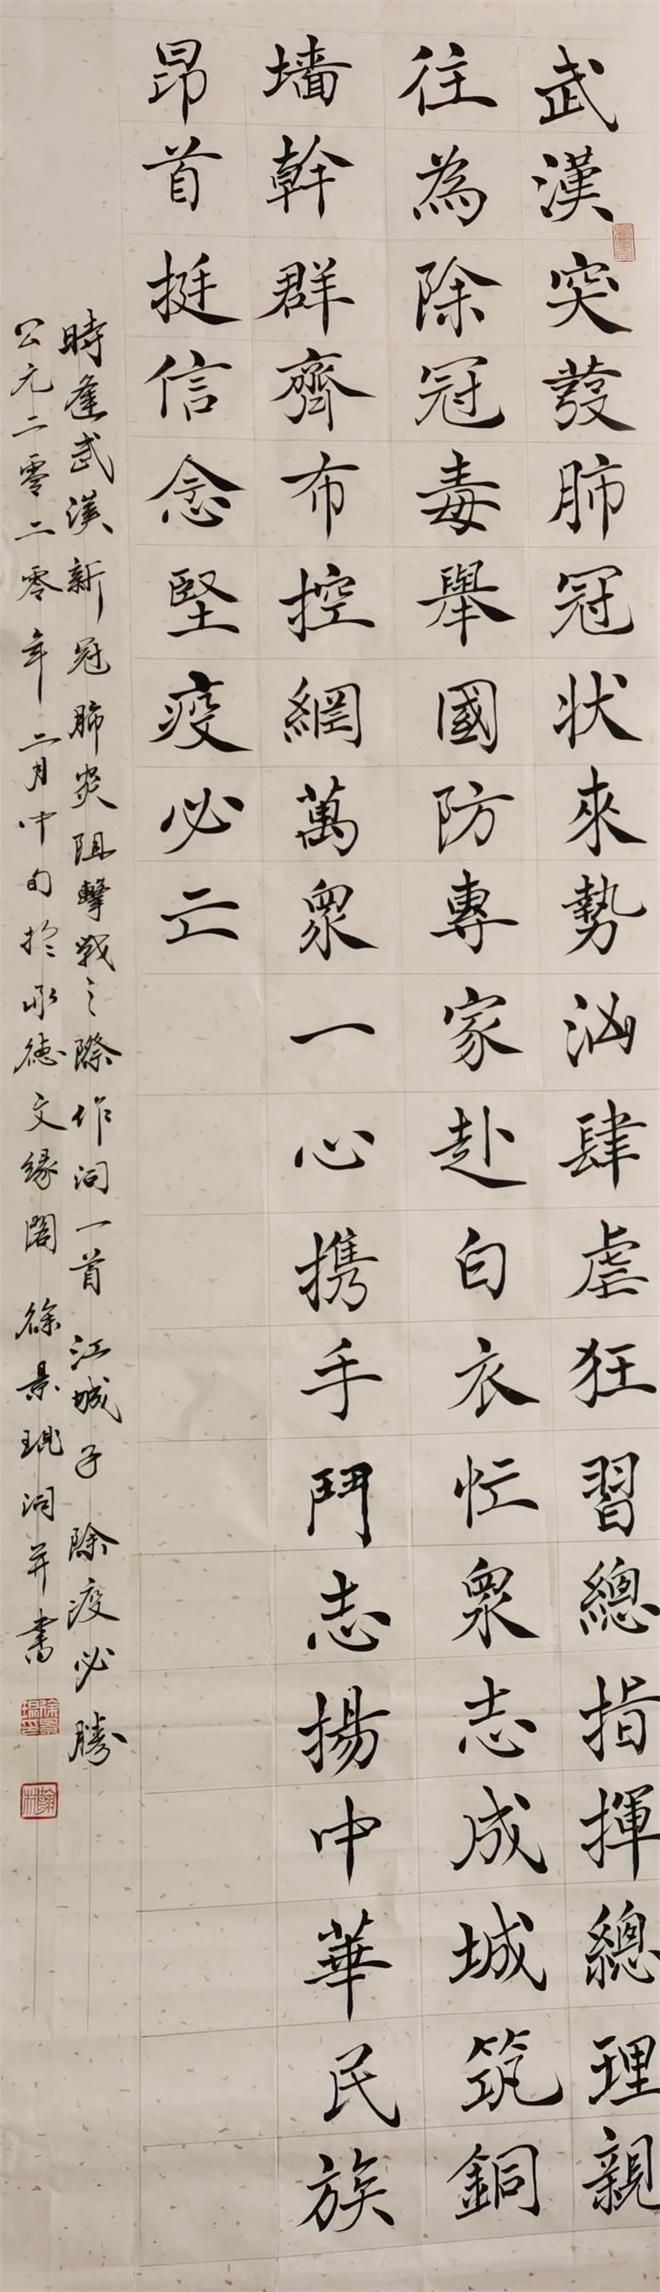 武漢突發肺冠状來勢汹肆虐狂習總指揮總理親
往為除冠毒舉國防專家赴白衣忙衆志成城筑銅
墙幹群齊布控網萬衆一心携手鬥志揚中華民族
昂首挺信念堅疫必亡
時逢武漢新冠肺炎阻擊戰之際作词一首江城子除疫必勝
公元二零二零年二月中旬於承德文缘閣徐景琨词并書